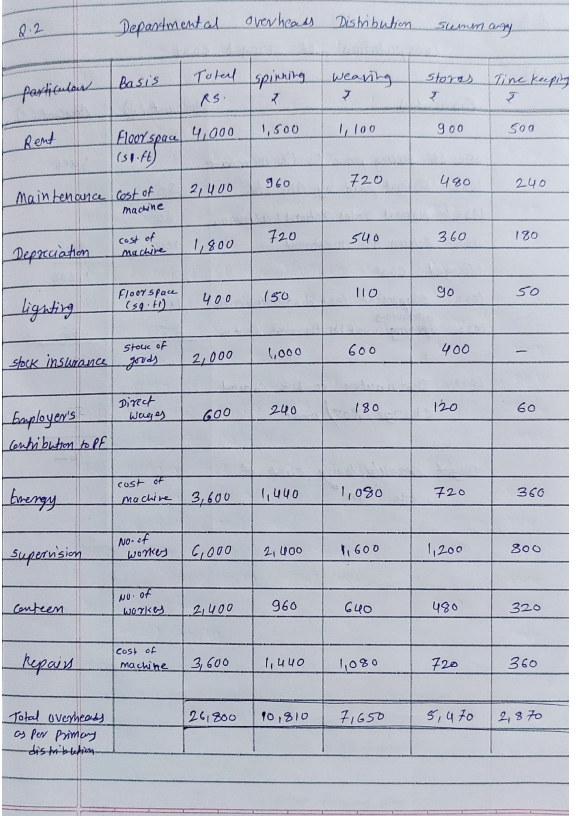 Q.2 Departmental overheads Distribution summary
Particular Basis Total Rs. Spinning ₹ Weaving ₹ Stores ₹ Time keeping ₹
Rent Floor space (sq.ft) 4,000 1,500 1,100 900 500
Maintenance Cost of machine 2,400 960 720 480 240
Depreciation cost of machine 1,800 720 540 360 180
Lighting Floor space (sq.ft) 400 150 110 90 50
Stock insurance Stock of goods 2,000 1,000 600 400 —
Employer's contribution to PF Direct wages 600 240 180 120 60
Energy cost of machine 3,600 1,440 1,080 720 360
Supervision No. of workers 6,000 2,400 1,600 1,200 800
Canteen No. of workers 2,400 960 640 480 320
Repairs cost of machine 3,600 1,440 1,080 720 360
Total overheads as per primary distribution 26,800 10,810 7,650 5,470 2,870